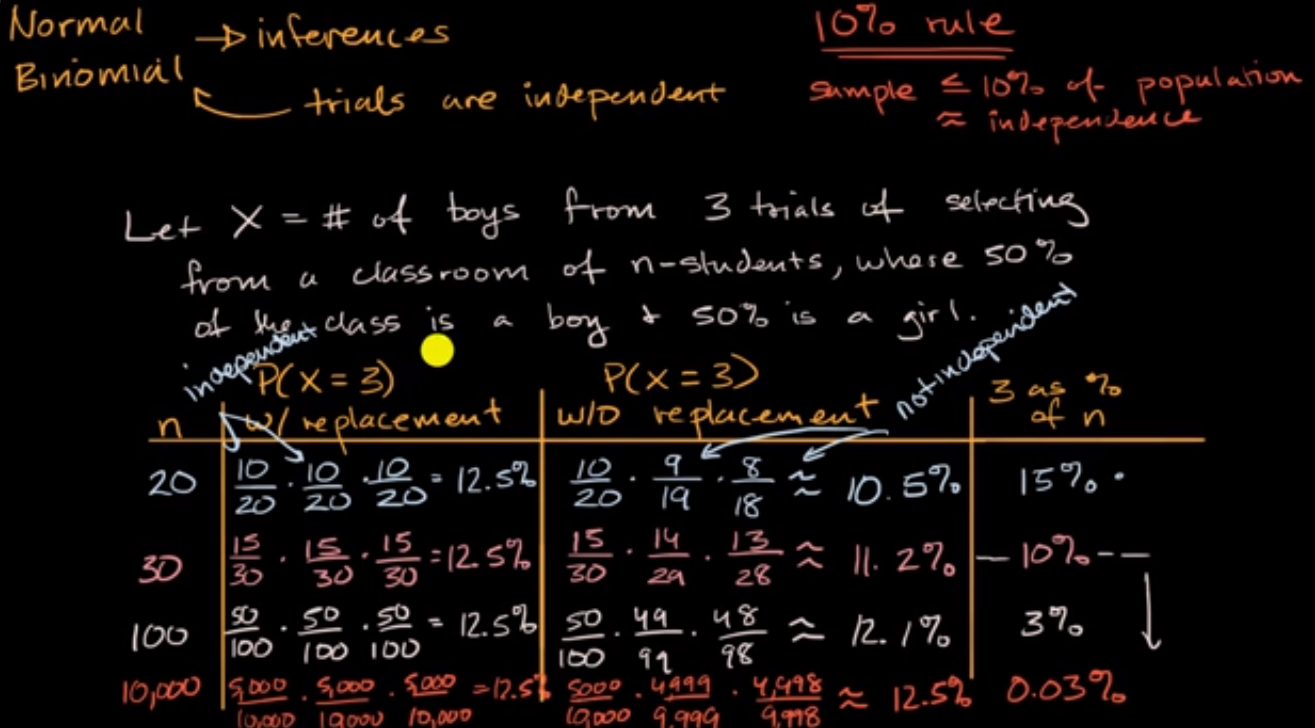 Normal → inferences
Binomial
trials are independent
10% rule
sample ≤ 10% of population
≈ independence
Let X = # of boys from 3 trials of selecting
from a classroom of n-students, where 50%
of the class is a boy + 50% is a girl.
independent
not independent
n
P(X = 3)
w/ replacement
P(X = 3)
w/o replacement
3 as %
of n
20 10/20 · 10/20 · 10/20 = 12.5% 10/20 · 9/19 · 8/18 ≈ 10.5% 15%
30 15/30 · 15/30 · 15/30 = 12.5% 15/30 · 14/29 · 13/28 ≈ 11.2% 10%
100 50/100 · 50/100 · 50/100 = 12.5% 50/100 · 49/99 · 48/98 ≈ 12.1% 3%
10,000 5,000/10,000 · 5,000/10,000 · 5,000/10,000 = 12.5% 5000/10,000 · 4,999/9,999 · 4,998/9,998 ≈ 12.5% 0.03%